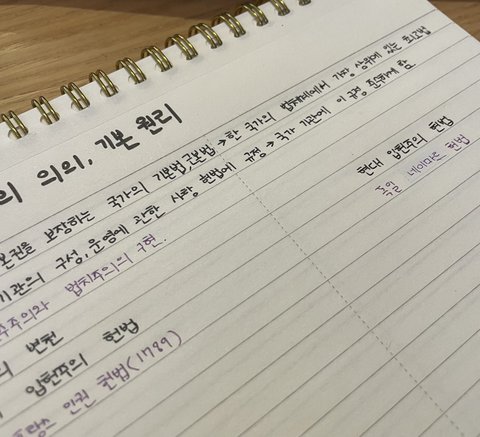 의 의의, 기본 원리
본권을 보장하는 국가의 기본법, 근본법 → 한 국가의 법체계에서 가장 상위에 있는 최고법
기관의 구성, 운영에 관한 사항 헌법에 규정 → 국가 기관에 이 규정 준수하게 함
주주의와 법치주의의 구현.
의 변천
입헌주의 헌법
현대 입헌주의 헌법
랑스 인권 헌법(1789)
독일 바이마르 헌법